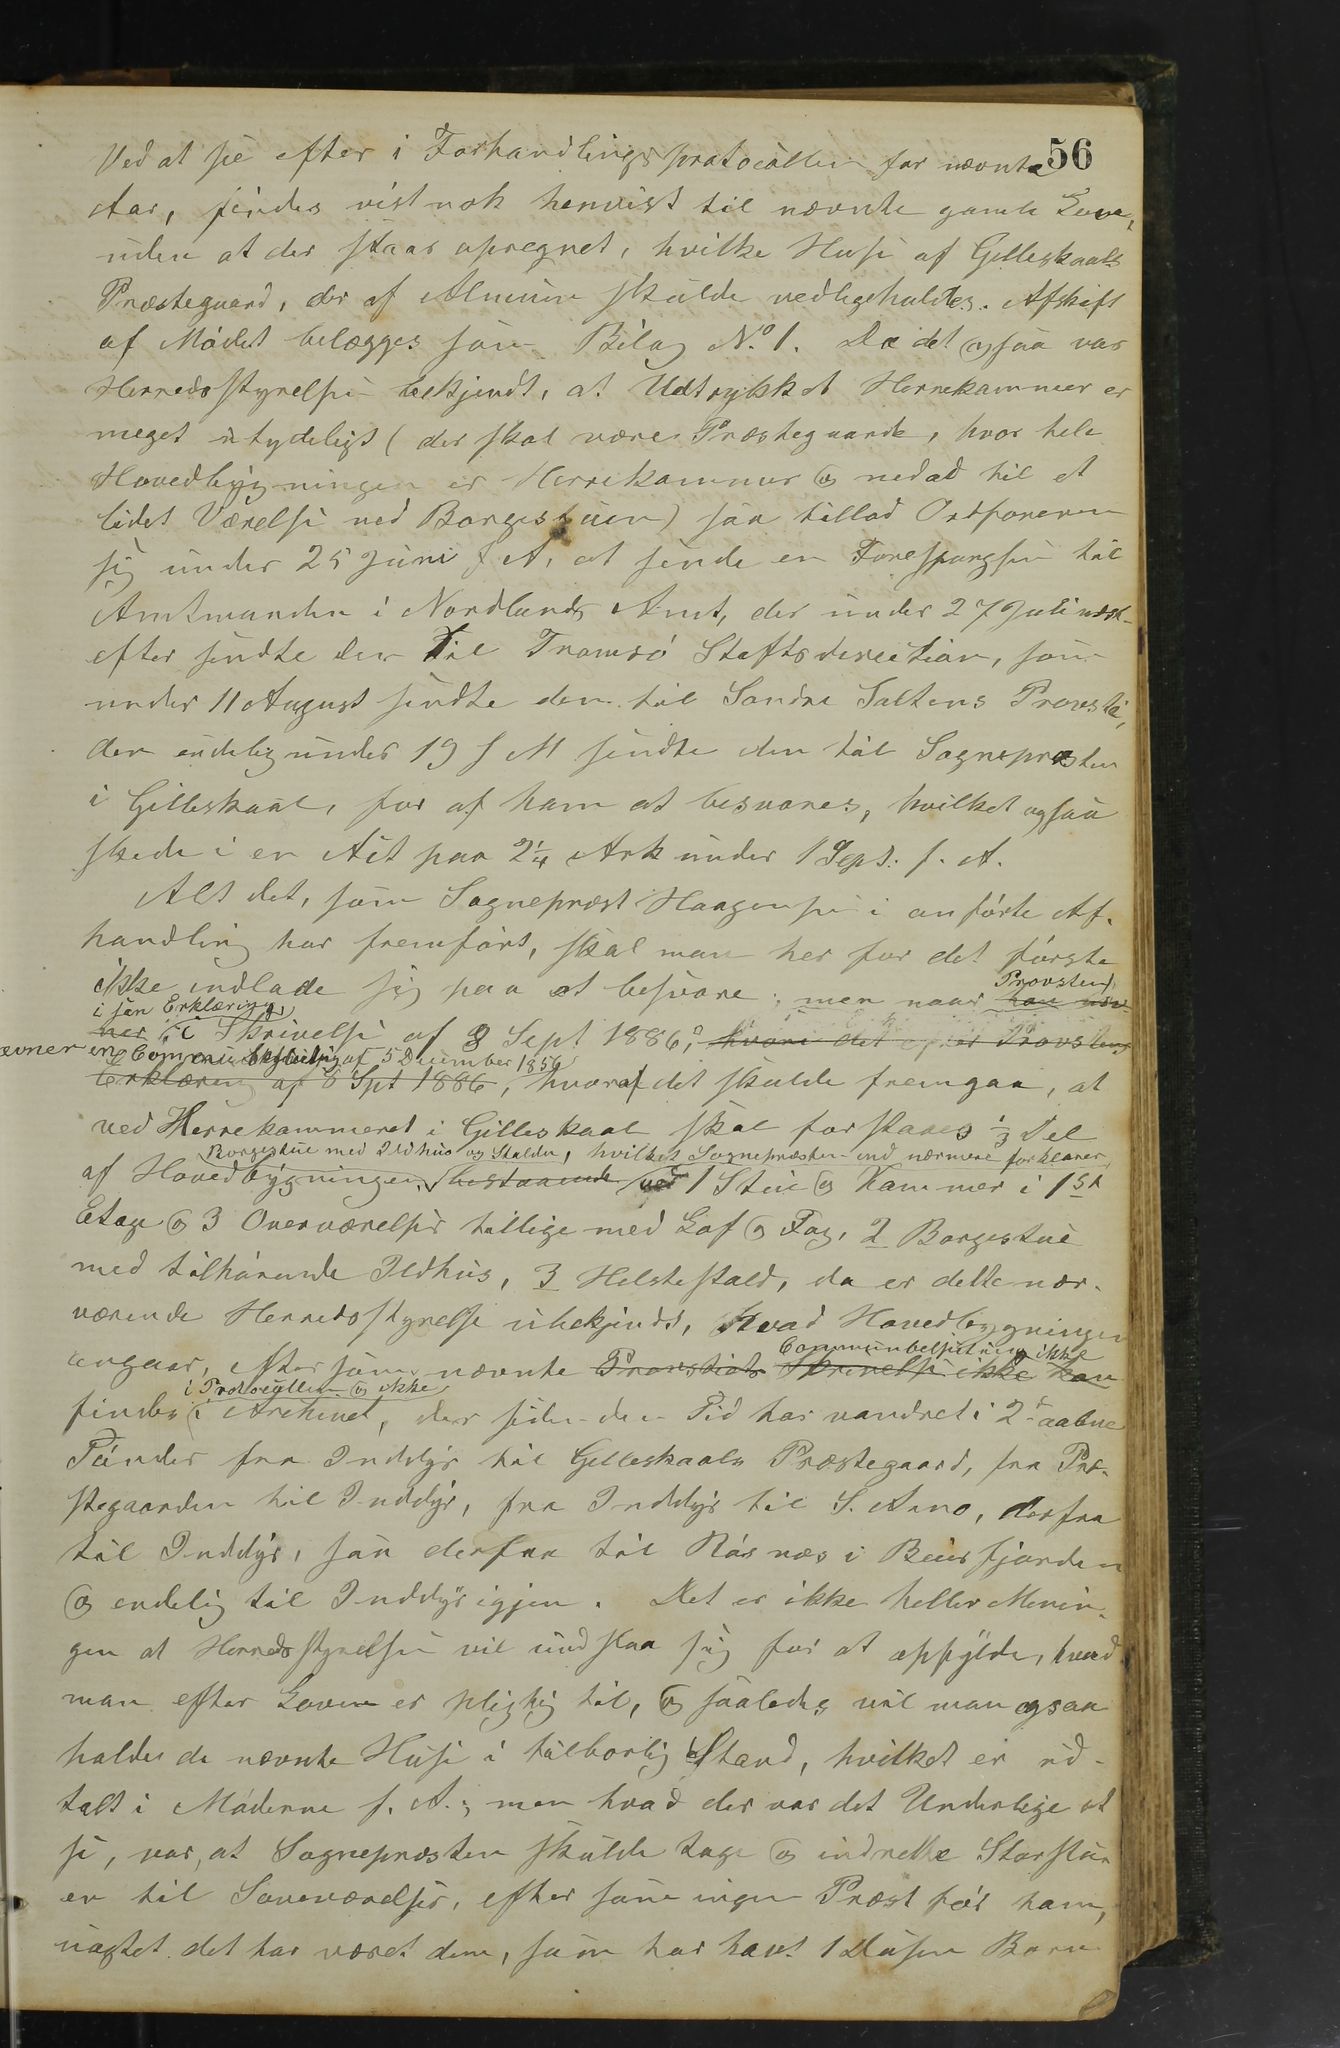 56
Ved at see efter i Forhandlingsprotocollen for nævnte
Aar, findes vistnok henvist til nævnte gamle Love,
uden at der staar opregnet, hvilke Huse af Gilleskaals
Præstegaard, der af Almuen skulde vedligeholdes. Afskift
af Mødet belægges som Bilag No. 1. Da det ogsaa var
Herredsstyrelsen bekjendt, at Udtrykket Herrekammer er
meget utydeligt (der skal være Præstegaarde, hvor hele
Hovedbygningen er Herrekammer og nedad til et
lidet Værelse ved Borgestuen) saa tillod Ordføreren
sig under 25 Juni f A. at sende en Forespørgsel til
Amtmanden i Nordlands Amt, der under 27 Juli næst-
efter sendte den til Tromsø Stiftsdirection, som
under 11 August sendte den til Søndre Saltens Provsti,
der endelig under 19 s M sendte den til Sognepræsten
i Gilleskaal, for af ham at besvares, hvilket ogsaa
skede i en Act paa 2¼ Ark under 1 Sept. f. A.
Alt det, som Sognepræst Haagensen i anførte Af-
handling har fremført, skal man her for det første
ikke indlade sig paa at besvare; men naar han næv-
Provsten
i sin Erklæring
ner i Skrivelse af 8 Sept 1886, hvori det efter Provstens
nævner en Communebeslutning af 5 December 1856
Erklæring af 8 Spt 1886, hvoraf det skulde fremgaa, at
ved Herrekammeret i Gilleskaal skal forstaaes 1/3 Del
Borgestue med Ildhus og Stalden, hvilket Sognepræsten end nærmere forklarer
af Hovedbygningen, bestaaende ved 1 Stue og Kammer i 1st
Etage og 3 Oværværelser tillige med Lof og Fag, 2 Borgestue
med tilhørende Ildhus, 3 Hestestald, da er dette nær-
værende Herredsstyrelse ubekjendt, hvad Hovedbygningen
angaar, eftersom nævnte Provstiets Skrivelse ikke kan
Communebeslutning ikke
i Protocollen og ikke
findes i Archivet, der siden den Tid har vandret i 2de aabne
Tønder fra Inddyr til Gilleskaals Præstegaard, fra Præ-
stegaarden til Inddyr, fra Inddyr til S. Arnø, derfra
til Inddyr, saa derfra til Røsnæs i Beiersfjorden
og endelig til Inddyr igjen. Det er ikke heller Menin-
gen at Herredsstyrelsen vil undslaa sig for at opfylde, hvad
man efter Loven er pligtig til, og saaledes vil man ogsaa
holder de nævnte Huse i tilbørlig Stand, hvilket er ud-
talt i Møderne f. A.; men hvad der var det Underlige at
se, var, at Sognepræsten skulde tage og indrette Storstu-
en til Soveværelser, eftersom ingen Præst før ham,
uagtet det har været dem, som har havt 1 Dusin Børn